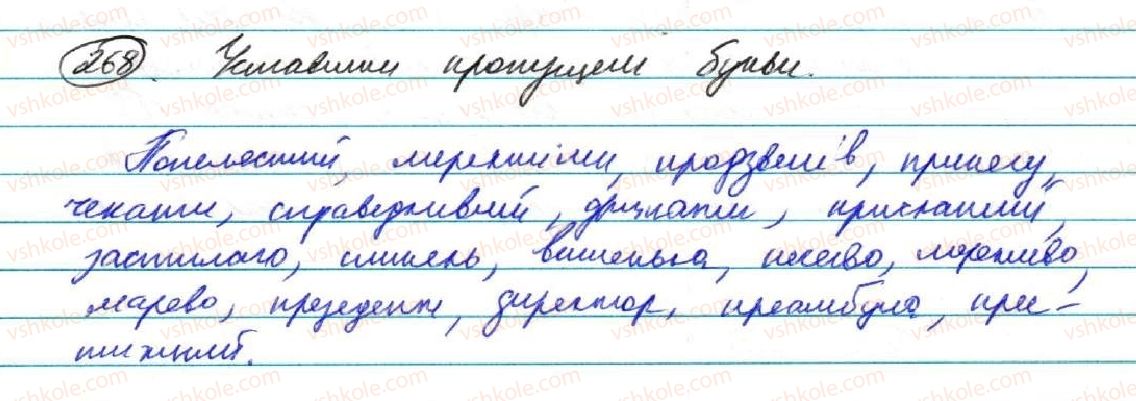 268. Уставили пропущені букви.
Попелястий, мерехтіти, продзвенів, принесу,
чекати, справедливий, дрižати, присланий,
застилаго, слинень, вишенька, месиво, морозиво,
марево, президент, директор, преамбула, при-
тихлий.